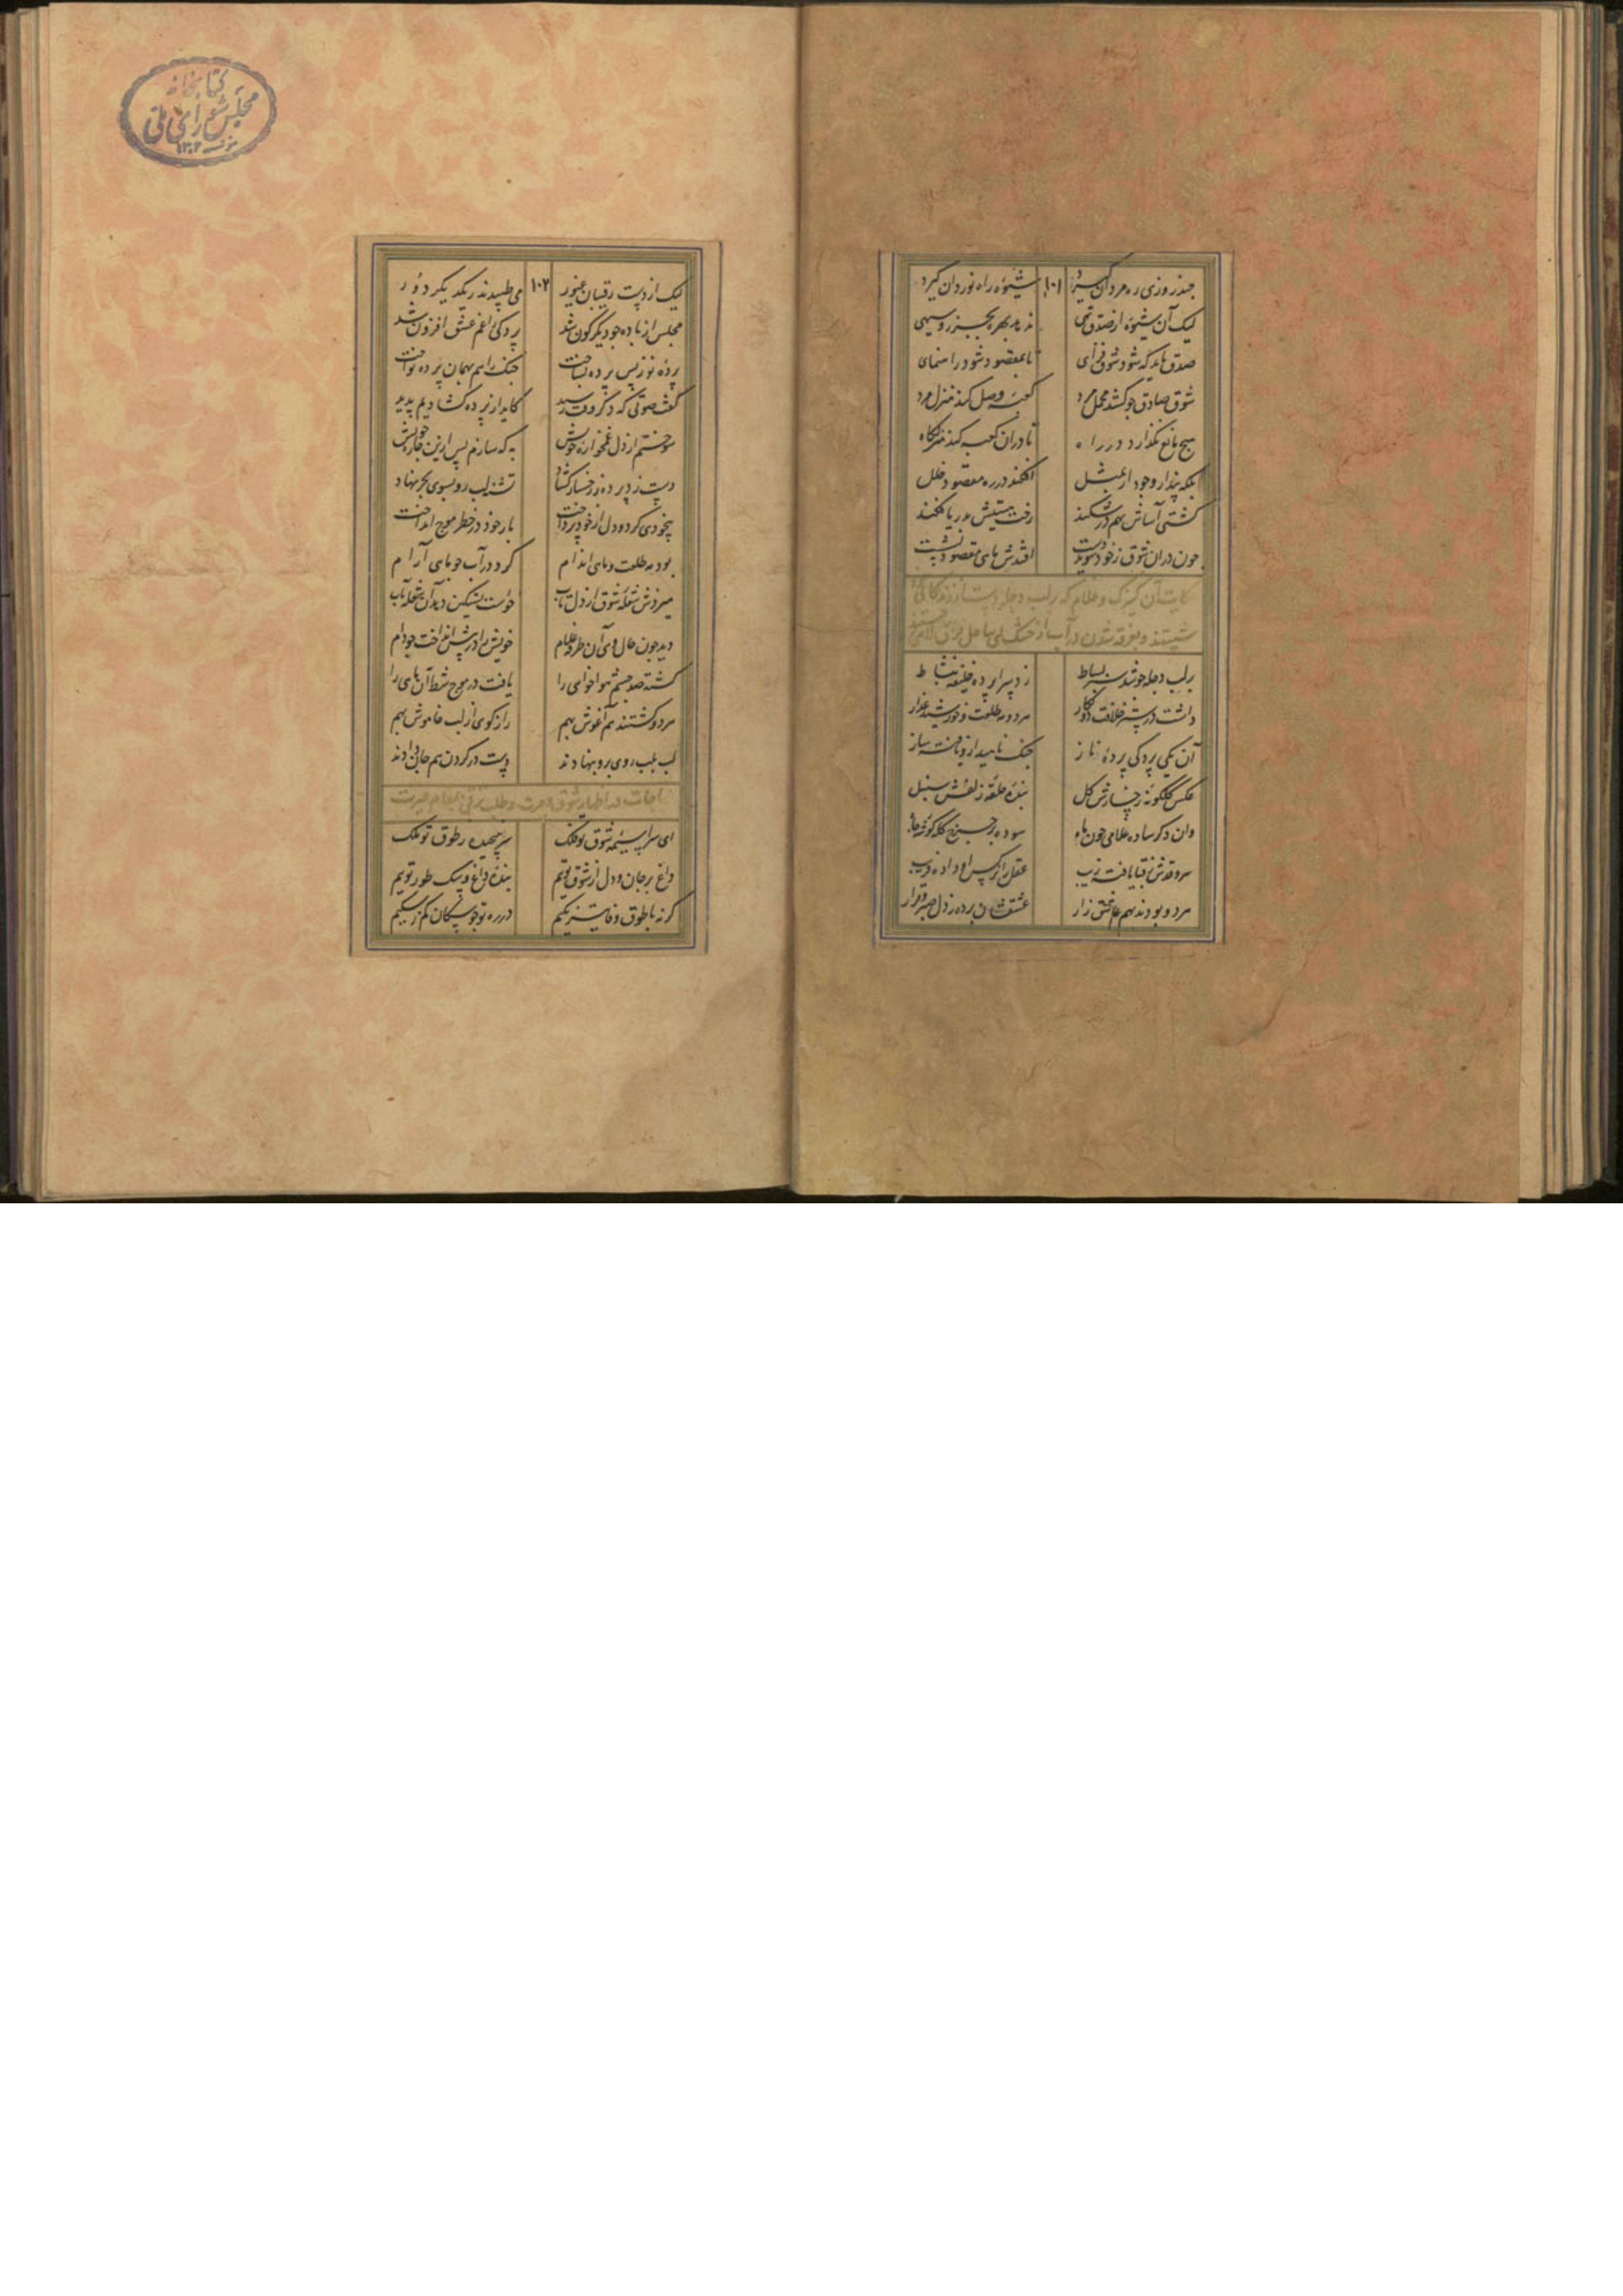 چند روزی ره مردان سپرد ۱۰۱ شیوهٔ راه نوردان گیرد
لیک آن شیوه از صدق تهی ندهد بهره بجز روسیهی
صدق باید که شود شوق فزای تا بمقصود شود راهنمای
شوق صادق چو کشد محمل مرد کعبهٔ وصل کند منزل مرد
هیچ مانع نگذارد در راه تا در آن کعبه کند منزلگاه
بلکه پندار وجود ار بمثل افکند در ره مقصود خلل
کشتی آساش بهم درشکند رخت هستیش بدریا فکند
چون در آن شوق ز خود شوید دست افتدش ماهی مقصود بشست
حکایت آن کنیزک و غلام که بر لب دجله دست از زندگانی
شستند و بغرقه شدن در آب از خشک لبی ساحل فراق
بر لب دجله چو شد سبز بساط زد سراپرده خلیفه بنشاط
داشت در ستر خلافت دو نگار هر دو مه طلعت و خورشید عذار
آن یکی پردگی پردهٔ ناز چنگ ناهید ازو یافته ساز
عکس گلگونهٔ رخسارش گل بندهٔ حلقهٔ زلفش سنبل
وان دگر ساده غلامی چون ماه سوده بر چرخ کله گوشهٔ جاه
سرو قدش ز قبا یافته زیب عقل را نرگس او داده فریب
هر دو بودند بهم عاشق زار عشقشان برده ز دل صبر و قرار
لیک از دست رقیبان غیور ۱۰۲ می طپیدند ز یکدیگر دور
مجلس از باده چو دیگرگون شد پردگی را غم عشق افزون شد
پردهٔ نو ز پس پرده بساخت چنگ را هم بهمان پرده نواخت
گفت صوتی که دگر وقت رسید کاید از پرده گشادیم پدید
سوختم از دل غمخوارهٔ خویش به که سازم پس ازین چارهٔ خویش
دست زد پرده ز رخسار گشاد تشنه لب رو بسوی بحر نهاد
بیخودی کرد و دل از خود پرداخت بار خود در خطر موج انداخت
بود مه طلعت و ماهی اندام کرد در آب چو ماهی آرام
میزدش شعلهٔ شوق از دل تاب خواست تسکین دهد آن شعله بآب
دید چون حال وی آن طرفه غلام خویش را در پیش انداخت چو دام
گشته صد چشم هواخواهی را یافت در موج شط آن ماهی را
هر دو گشتند هم آغوش بهم رازگوی از لب خاموش بهم
لب بلب روی برو بنهادند دست در گردن هم جان دادند
مناجات در اظهار شوق و طلب ترقی بمقام غیرت
ای سراسیمهٔ شوق تو فلک سر نهیده در طوق تو ملک
داغ بر جان و دل از شوق توییم بندهٔ داغ و سگ طوق توییم
گر نه با طوق وفایت نزیکیم در ره تو چو سگان کم ز سگیم
کتابخانه
مجلس شورای ملی
۱۳۰۲